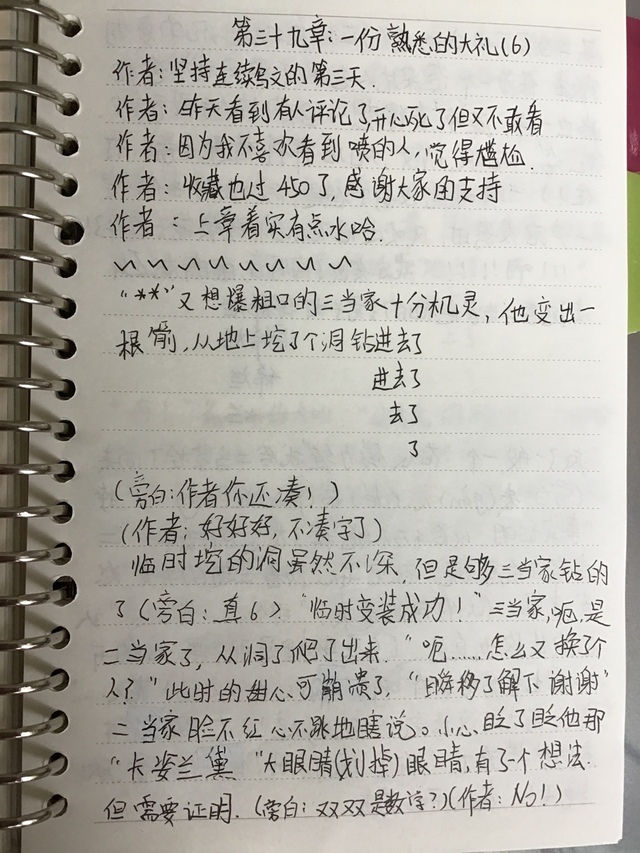 第三十九章:一份熟悉的大礼(6)
作者:坚持连续写文的第三天.
作者:昨天看到有人评论了,开心死了但又不敢看
作者:因为我不喜欢看到喷的人,觉得尴尬.
作者:收藏也过450了,感谢大家的支持
作者:上章着实有点水哈.
"**"又想爆粗口的三当家十分机灵,他变出一
根箭,从地上挖了个洞钻进去了
进去了
去了
了
(旁白:作者你还凑!)
(作者:好好好,不凑字了)
临时挖的洞虽然不深,但是够三当家钻的
了(旁白:真6)."临时变装成功!"三当家,呃,是
二当家了,从洞了爬了出来."呃……怎么又换了个
人?"此时的甜心可崩溃了,"瞬移了解下谢谢"
二当家脸不红心不跳地瞎说。小心眨了眨他那
"卡姿兰黛"大眼睛(划掉)眼睛,有了一个想法.
但需要证明.(旁白:双双是数学?)(作者:No!)